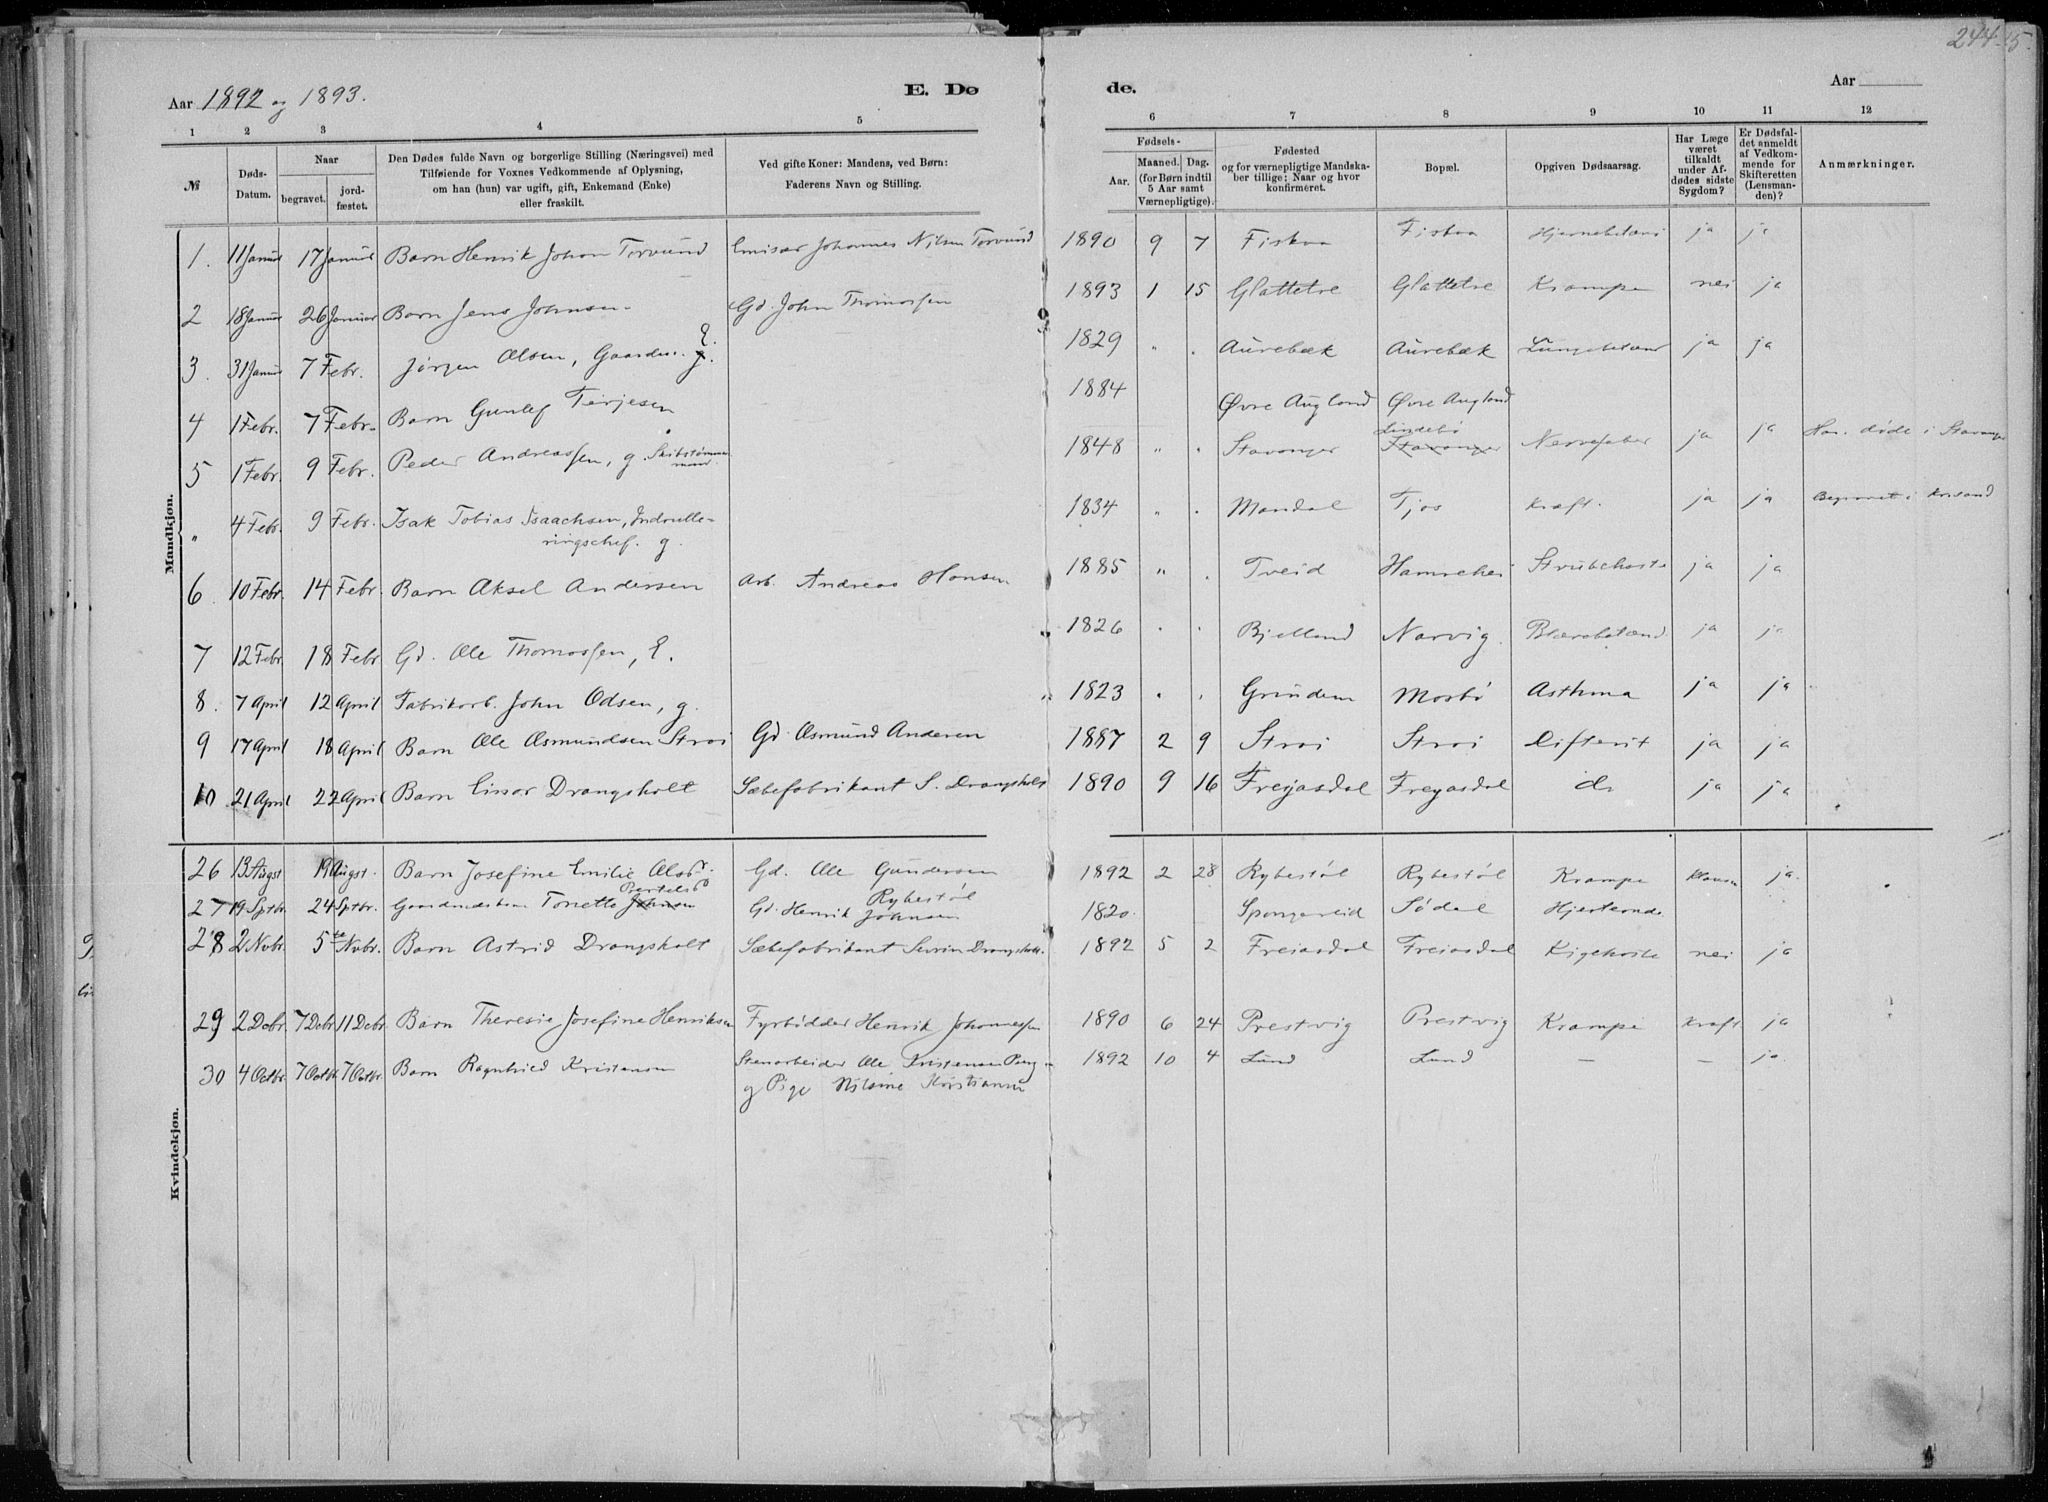 244
Aar 1892 og 1893.
E. Døde.
Aar
1 2 3 4 5 6 7 8 9 10 11 12
№
Døds-Datum.
Naar
begravet.
jordfæstet.
Den Dødes fulde Navn og borgerlige Stilling (Næringsvei) med
Tilføiende for Voxnes Vedkommende af Oplysning,
om han (hun) var ugift, gift, Enkemand (Enke)
eller fraskilt.
Ved gifte Koner: Mandens, ved Børn:
Faderens Navn og Stilling.
Fødsels-
Aar.
Maaned. Dag.
(for Børn indtil
5 Aar samt
Værnepligtige).
Fødested
og for værnepligtige Mandska-
ber tillige: Naar og hvor
konfirmeret.
Bopæl.
Opgiven Dødsaarsag.
Har Læge
været
tilkaldt
under Af-
dødes sidste
Sygdom?
Er Dødsfal-
det anmeldt
af Vedkom-
mende for
Skifteretten
(Lensman-
den)?
Anmærkninger.
Mandkjøn.
1. 11 Januar 17 Januar Barn Henrik Johan Torvund Emisær Johannes Nilsen Torvund 1890 9 7 Fiskaa Fiskaa ja ja
2 18 Januar 26 Januar Barn Jens Johnsen Gd. John Thomassen 1893 1 15 Glattetre Glattetre Krampe nei ja
3. 31 Januar 7 Febr. Jørgen Olsen, Gaardm. E. 1829 " " Aurebæk Aurebæk Lungebetænd ja ja
4 1 Febr. 7 Febr. Barn Gunlef Terjesen 1884 Øvre Augland Øvre Augland
5 1 Febr. 9 Febr. Peder Andreassen, g. Skibstømmermand. 1848 " " Stavanger Lindebø Stavanger Nervefeber ja ja Han døde i Stavanger
" 4 Febr. 9 Febr. Isak Tobias Isaachsen, Indrulle-
ringschef. g. 1834 " " Mandal Tjos Kraft. ja ja Begravet i Krisand
6 10 Febr. 14 Febr. Barn Aksel Andersen Arb. Andreas Hansen 1885 " " Tveid Hamrehei Strubehoste ja ja
7 12 Febr. 18 Febr Gd. Ole Thomassen, E. 1826 " " Bjelland Narvig Blærebetænd. ja ja
8. 7 April 12 April Fabrikarb. John Odsen, g. 1823 " " Mosbø Asthma ja ja
9 17 April 18 April Barn Ole Osmundsen Strai Gd. Osmund Andersen 1887 2 9 Strai Strai Difterit ja ja
10 21 April 22 April Barn Einar Drangsholt Sæbefabrikant S. Drangsholt 1890 9 16 Freyasdal Freyasdal do ja ja
Kvindekjøn.
26 13 Augst 19 Augst. Barn Josefine Emilie Olsdr. Gd. Ole Gundersen Rybestøl 1892 2 28 Rybestøl Rybestøl Krampe ja.
27 19 Sptbr. 24 Sptbr. Tonette Johnsen Bertelsd Gd. Henrik Johnsen 1820. Sødal Hjerteonde
28 2 Nvbr. 5te Nvbr. Barn Astrid Drangsholt Sæbefabrikant Severin Drangsholt. 1892 5 2 Freiasdal Freiasdal Kighoste nei ja
29 2 Debr. 7 Debr 11 Debr. Barn Theresie Josefine Henriksen Fyrbødder Henrik Johannessen 1890 6 24 Prestvig Prestvig Krampe Kraft ja
30 4 Octbr. 7 Octbr. 7 Octbr. Barn Ragnhild Kristensen Stenarbeider Ole Kristensen
og Pige Nilsine Kristiansen 1892 10 4 Lund Lund — — ja